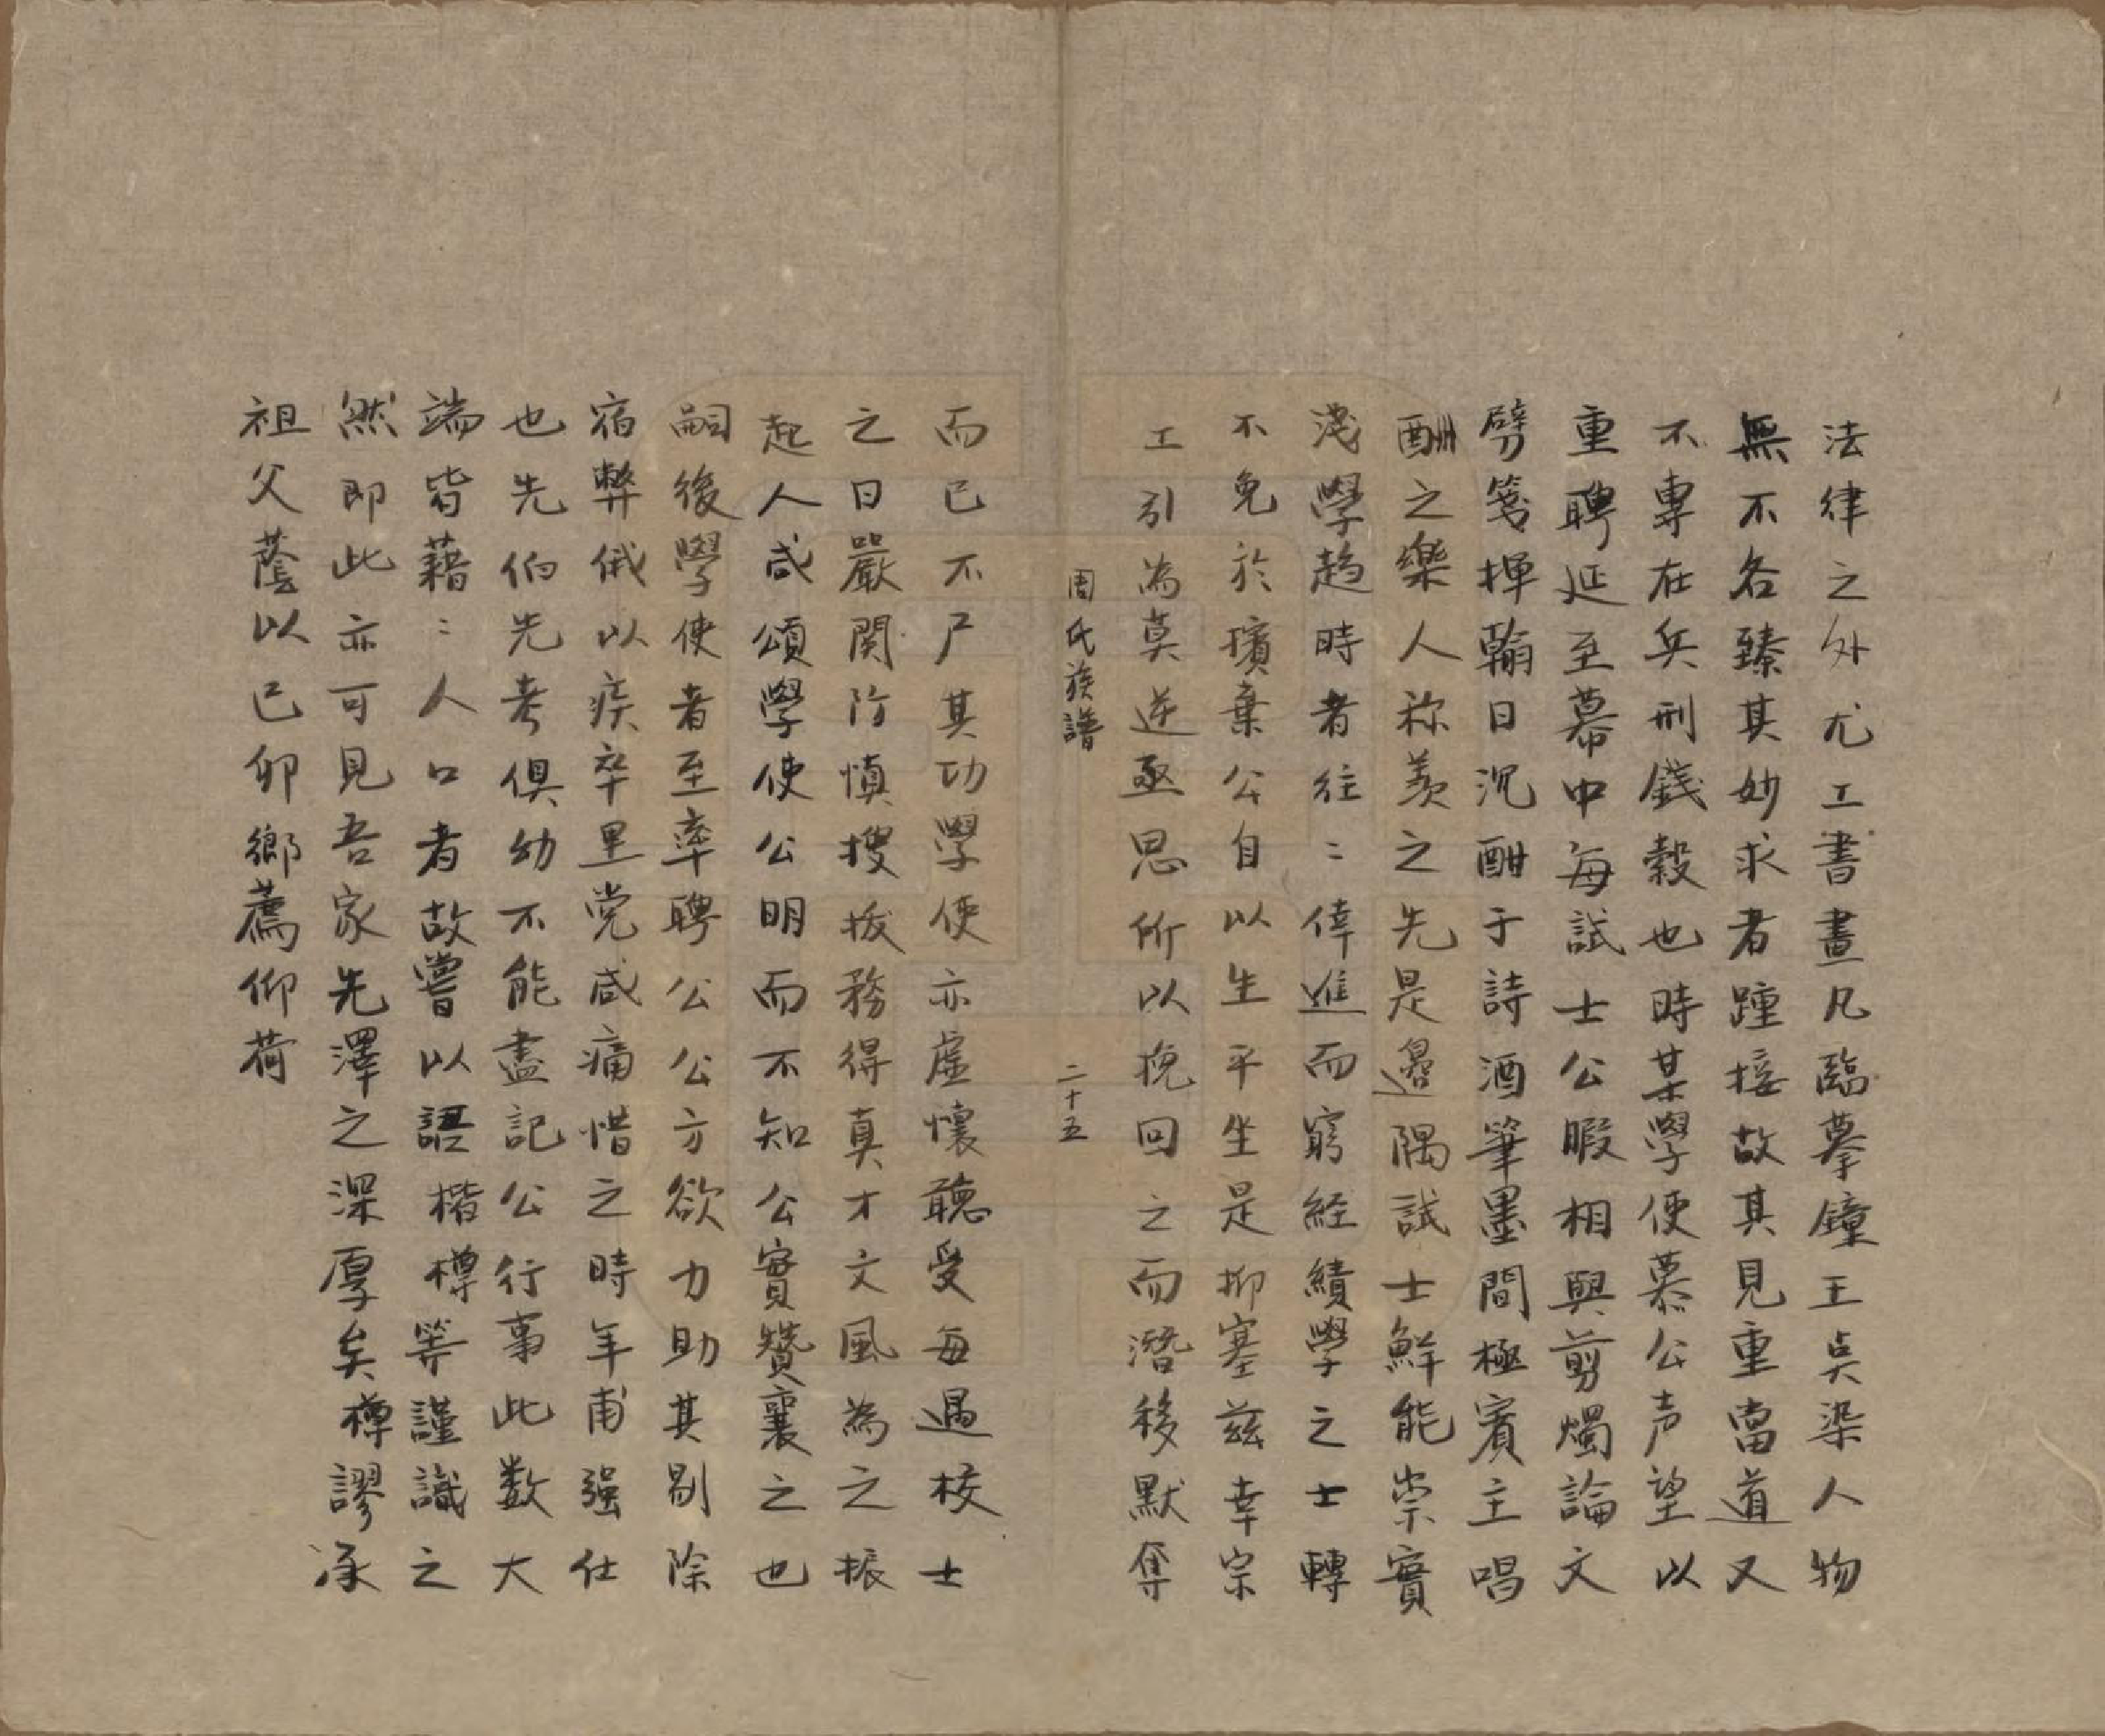 法律之外尤工書畫凡臨摹鐘王吳染人物
無不各臻其妙求者踵接故其見重當道又
不專在兵刑錢穀也時某學使慕公声望以
重聘延至幕中每試士公暇相與剪燭論文
劈箋揮翰日沉酣于詩酒筆墨間極賓主唱
酬之樂人称羨之先是邊隅試士鮮能崇實
淺學趋時者往〻倖進而窮經績學之士轉
不免於擯棄公自以生平坐是抑塞茲幸宗
工引為莫逆亟思所以挽回之而潛移默奪
周氏族譜 二十五
而已不尸其功學使亦虛懷聽受每遇校士
之日嚴関防慎搜拔務得真才文風為之振
起人咸頌學使公明而不知公實贊襄之也
嗣後學使者至率聘公公方欲力助其剔除
宿弊俄以疾卒里党咸痛惜之時年甫强仕
也先伯先考俱幼不能盡記公行事此数大
端皆藉〻人口者故嘗以語楷樽等謹識之
然即此亦可見吾家先澤之深厚矣樽謬承
祖父蔭以己卯鄉薦仰荷